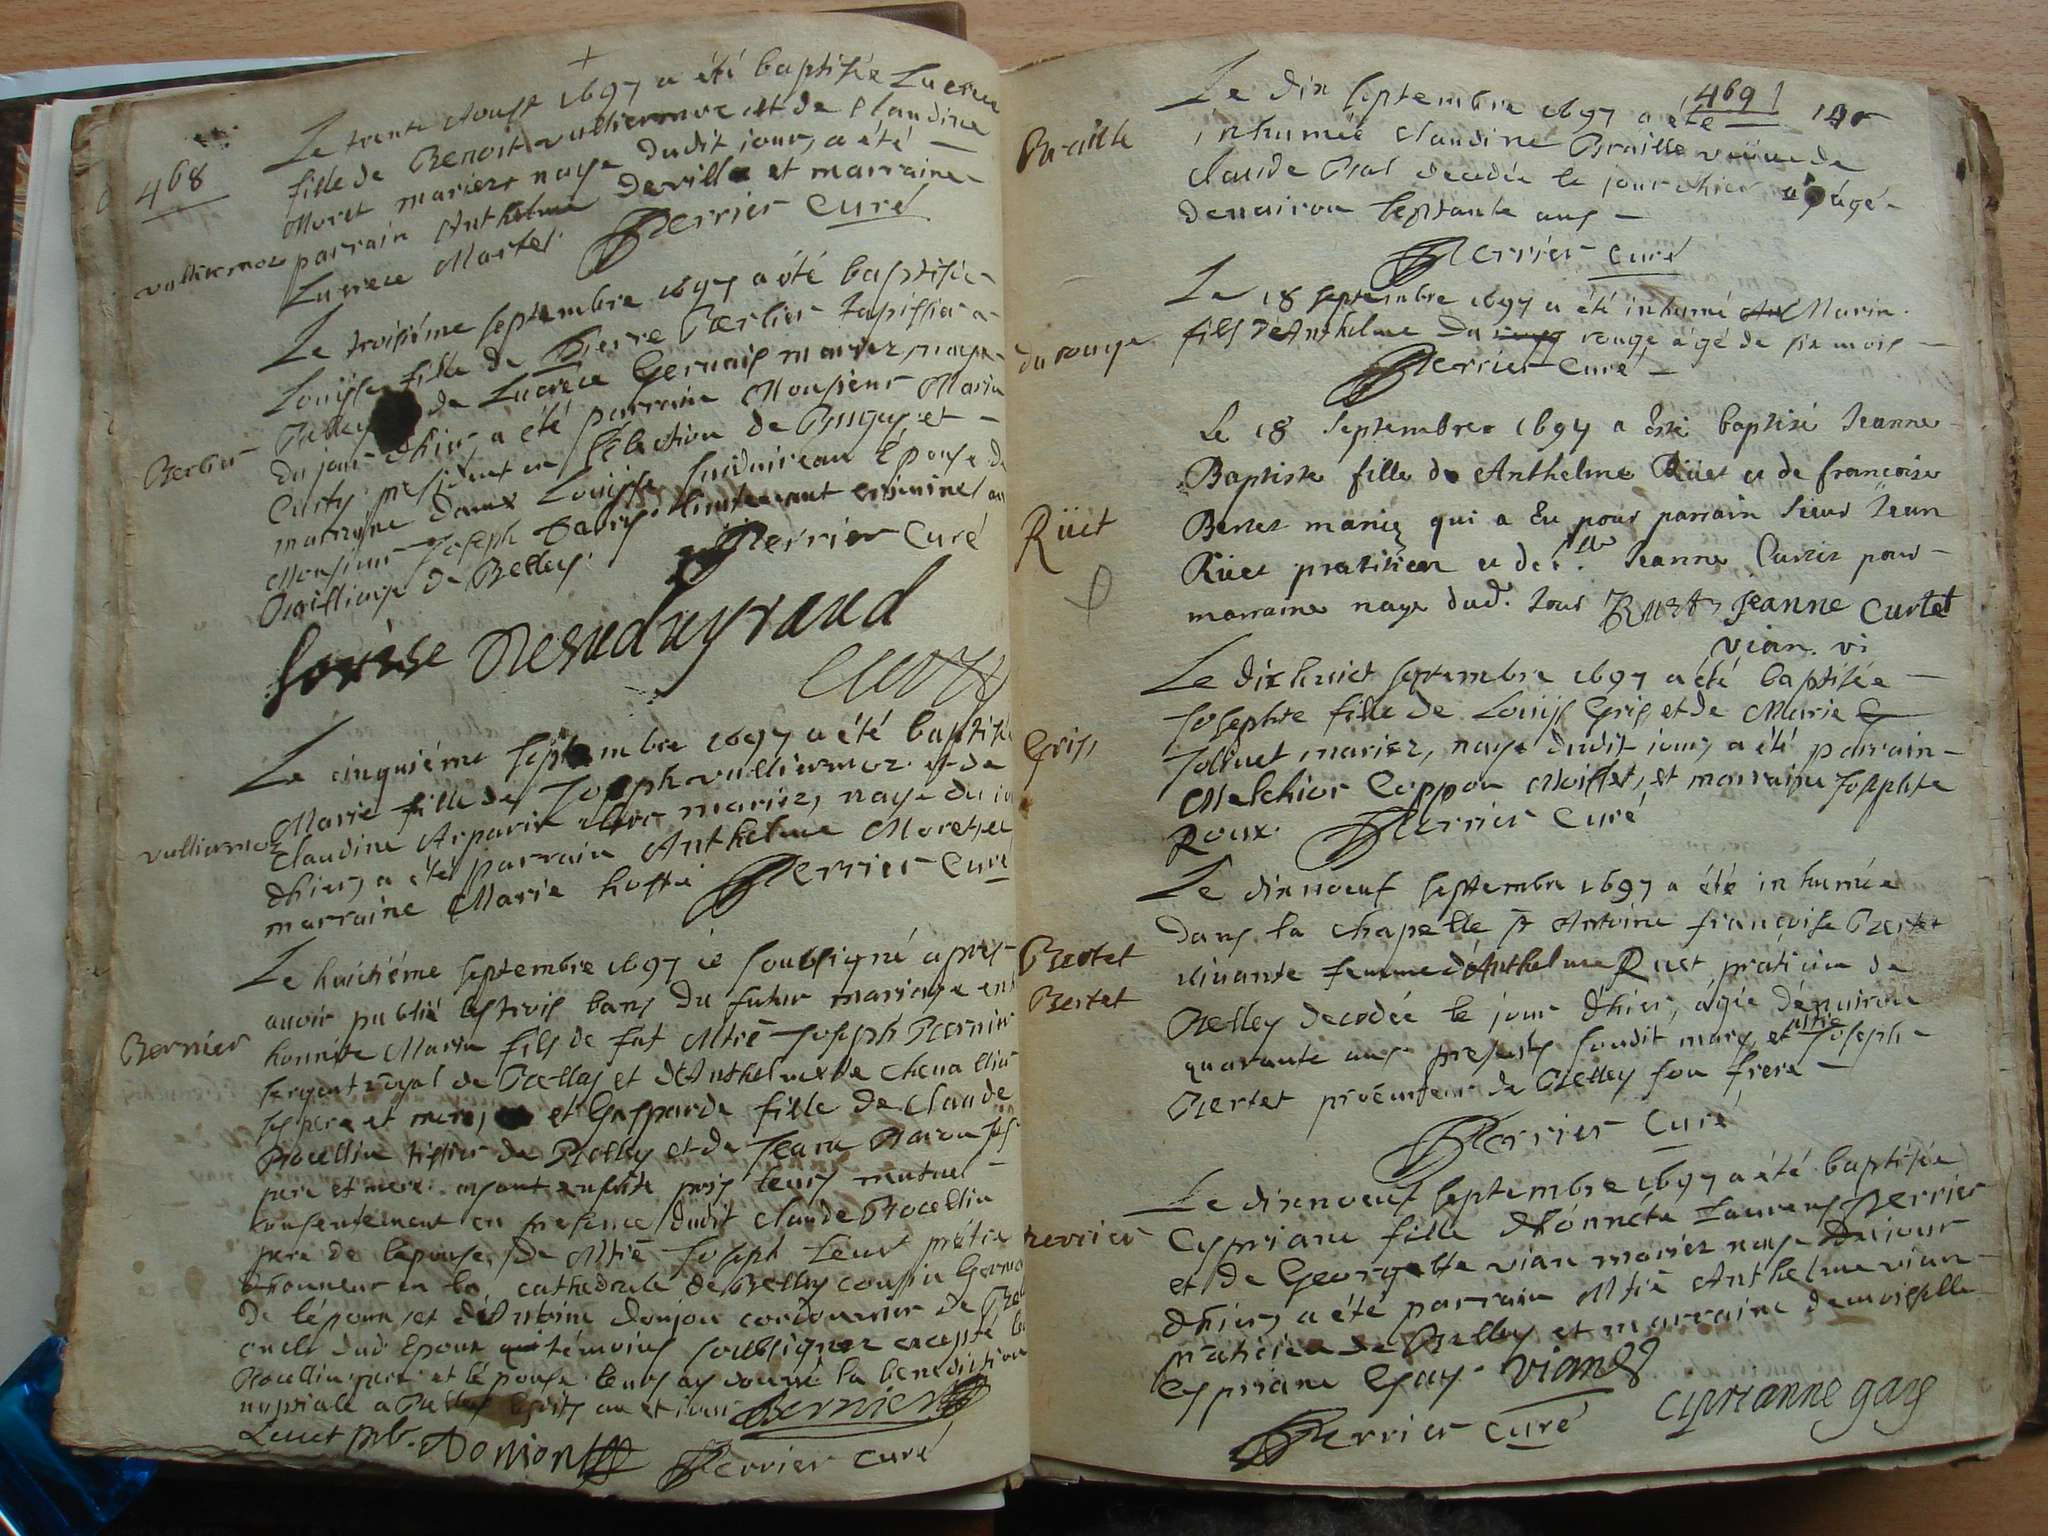 468
Le trente Aoust 1697 a été baptisée Lucrece
fille de Benoit vulliermoz et de Claudine
Moret mariez, naye dudit jour, a été
parrain Anthelme Deville et marraine
Lucrece Martel. Perrier Curé
vulliermoz
Le troisiéme septembre 1697 a été baptisée
Louisse fille de Pierre Berlier tapissier a
Belley de Lucrece Gervais mariez, naye
du jour dhier, a été parrain Monsieur Marin
Cuity president en l'Election de Bugey, et
marrayne damx Louisse Epouse de
Monsieur Joseph lieutenant criminel au
Bailliage de Belley. Perrier Curé
Berlier
Louise
Le cinquiéme septembre 1697 a été baptisée
Marie fille de Joseph vulliermoz et de
Claudine Arparin mariez, naye du jour
dhier, a été parrain Anthelme Moret, et
marraine Marie hoste Perrier Curé
vulliermoz
Le huictiéme septembre 1697 ie soubsigné apres
avoir publié les trois bans du futur mariage entre
honnete Marin fils de fut Mtre Joseph Bernier
sergent royal de Belley et d'Anthelmette Chevallier
ses pere et mere, et Gasparde fille de Claude
Rocellin tissier de Belley et de Jeane ses
pere et mere ayant ensuite pris leurs mutuel
consentement en presence dudit Claude Rocellin
pere de lepouse, de Mtre Joseph Leuet prétre
dhonneur en la cathedrale de Belley cousin Germain
De lépoux, et d'Antoine Donjon cordonnier de Belley
oncle dud. Epoux témoins soubsignez excepté led.
Rocellin pere et lépouse leurs ay donné la benediction
nuptiale a Belley lesdits an et jour Bernier
Leuet pb. Donion Perrier curé
Bernier
469
Le dix septembre 1697 a été
inhumée Claudine Braille veuve de
Claude Bral decedée le jour dhier agé
denuiron septante ans
Perrier Curé
Braille
Le 18 septembre 1697 a été inhumé Marin
fils d'Anthelme Du rouge agé de six mois
Perrier Curé
du rouge
Le 18 Septembre 1697 a Esté baptisé Jeanne
Baptiste fille de Anthelme Rüet et de francoise
Bertet mariez qui a Eu pour parrain Sieur Jean
Rüet pratitien et de.lle Jeanne Curtet pour
marraine naye dud. Jour Ruet Jeanne Curtet
vian. vi
Rüet
Le dixhuict septembre 1697 a été baptisée
Josephte fille de Louys Gris, et de Marie
Jolliuet mariez, naye dudit jour, a été parrain
Melchior Coppon Moisset, et marraine Josephte
Roux. Perrier Curé
Gris
Le dixnoeuf septembre 1697 a été inhumée
dans la chapelle St Antoine françoise Bertet
viuante femme d'Anthelme Ruet práticien de
Belley decedée le jour dhier, ágée dénuiron
quarante ans presents sondit mary, et Mtre Joseph
Bertet procureur de Belley son frere
Perrier Curé
Bertet
Bertet
Le dixnoeuf septembre 1697 a été baptisée
Cypriane fille dhónnéte Laurens Perrier
et de Georgette vian mariez naye du jour
dhier, a été parrain Mtre Anthelme vian
práticien de Belley et marraine demoiselle
Cypriane Gay. viand
Perrier curé ciprianne gay
perrier